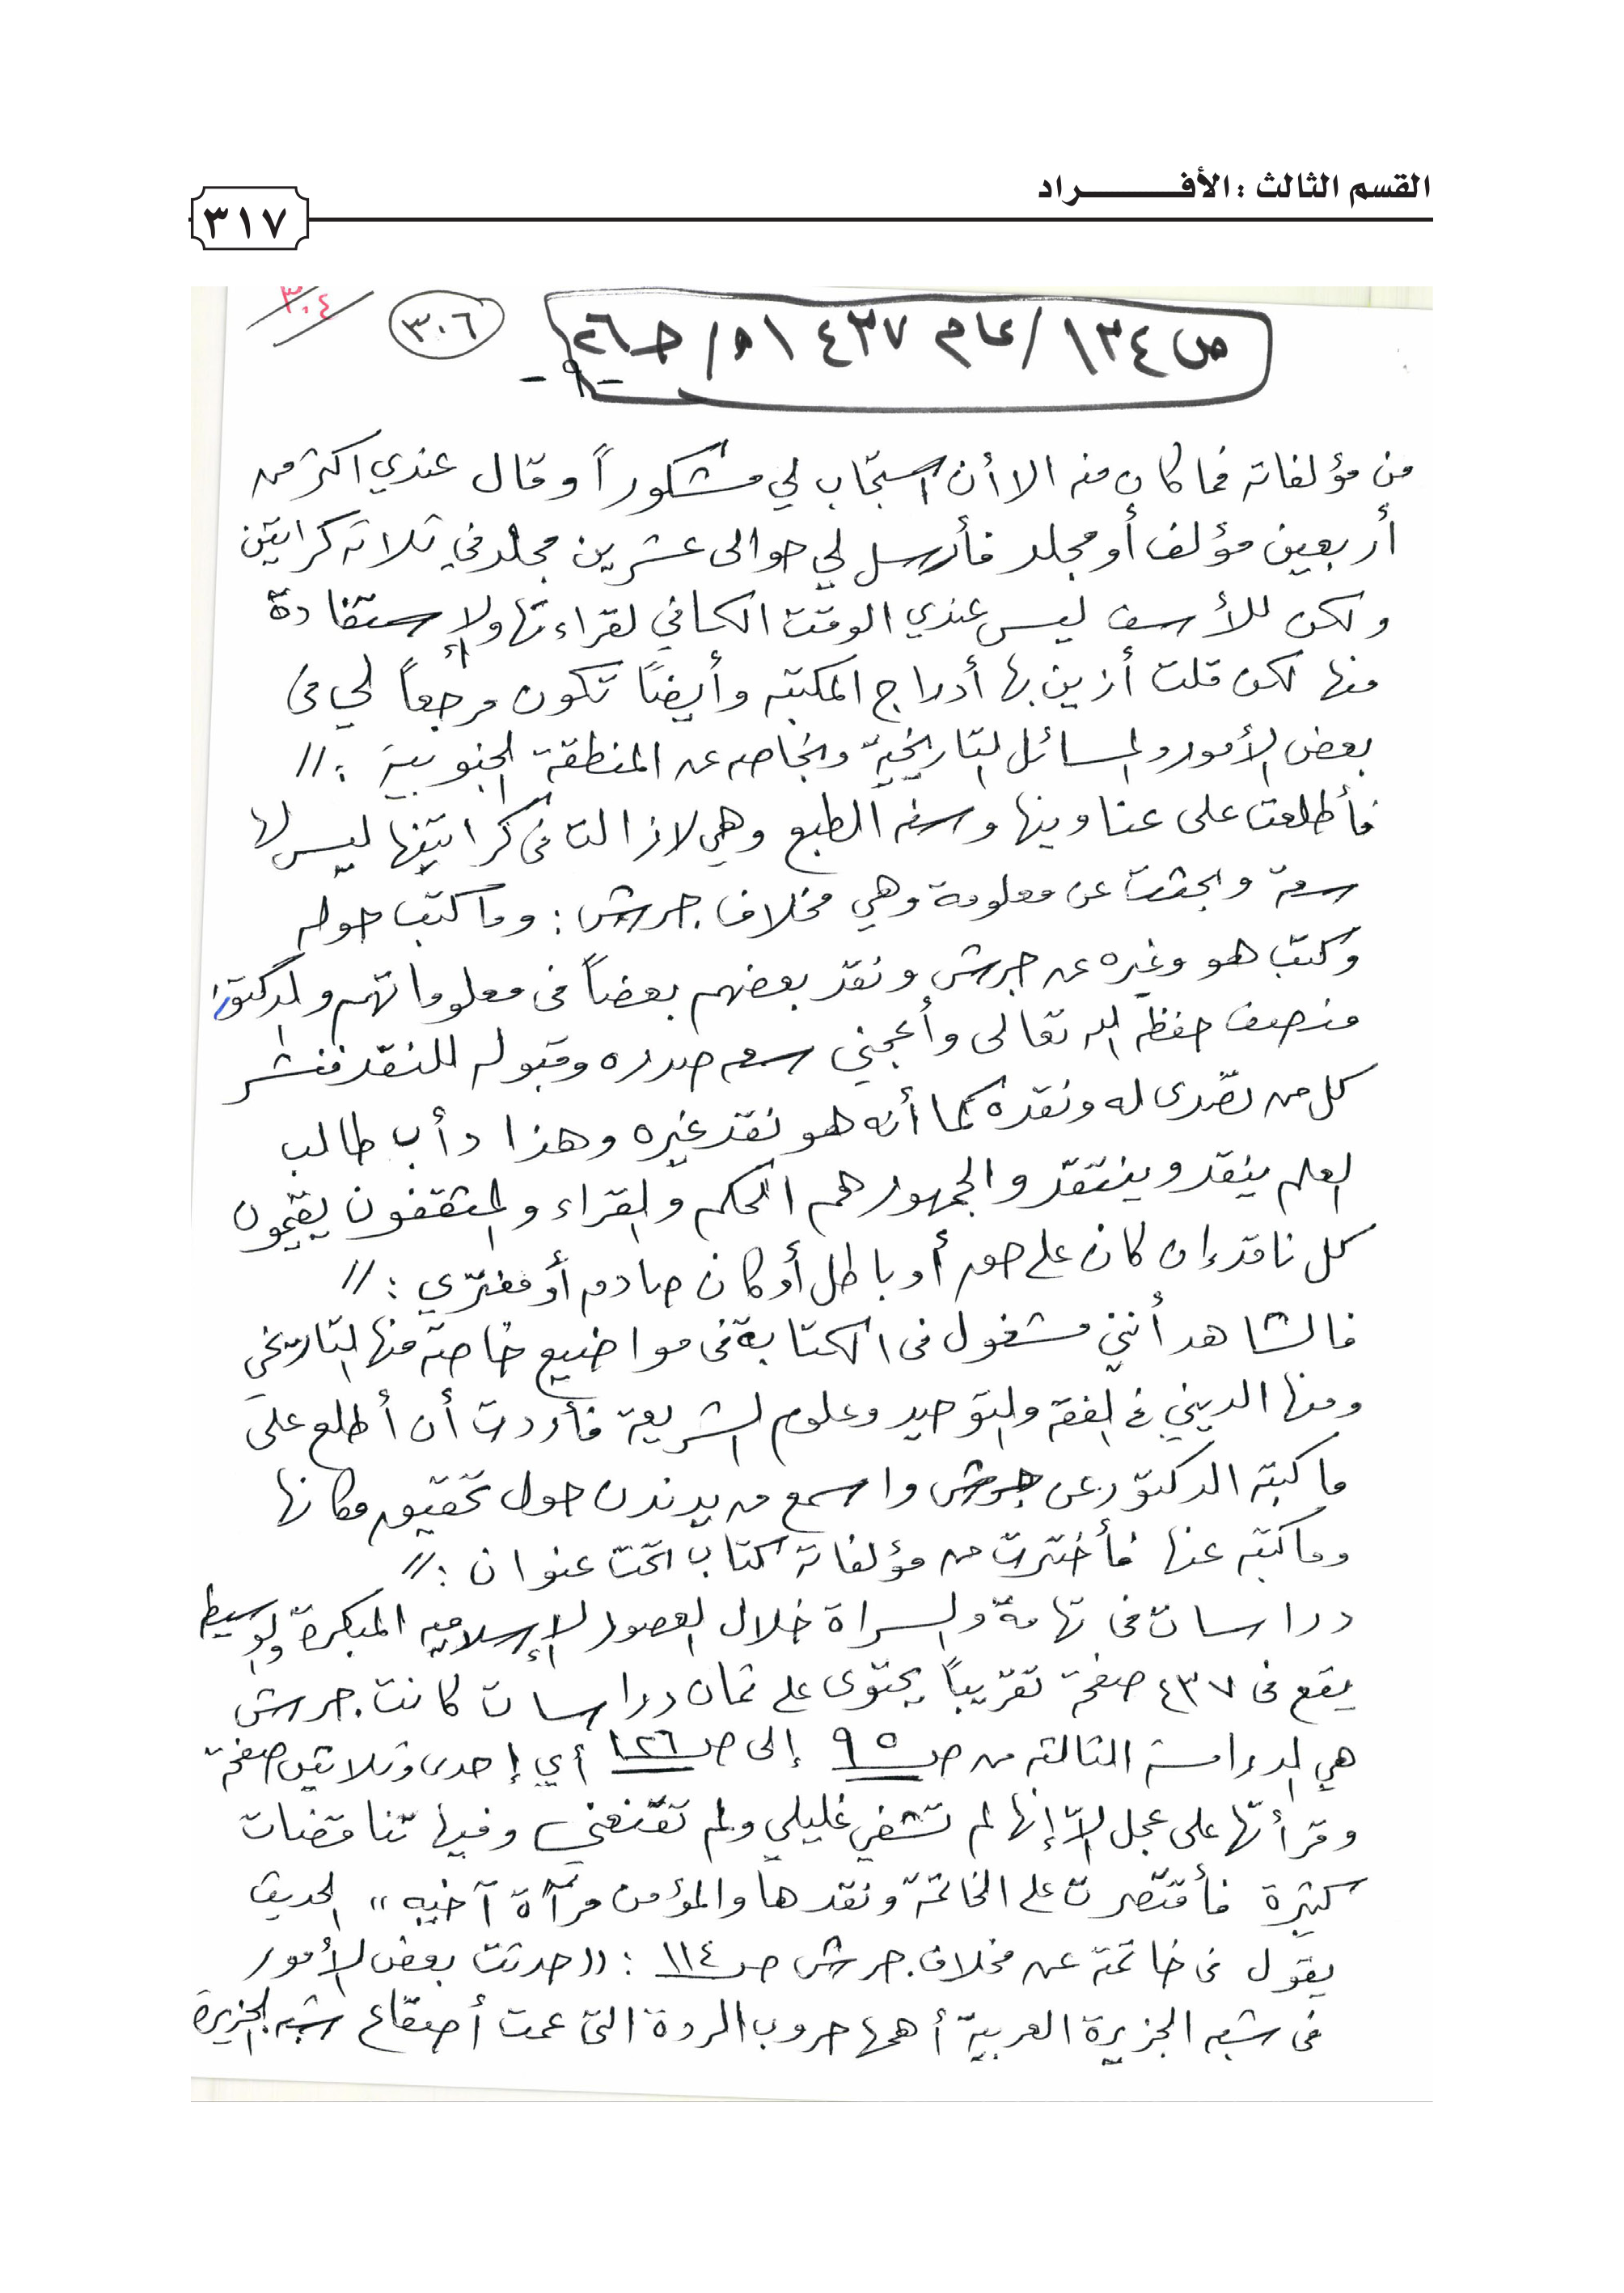 القسم الثالث : الأفـــــــراد
٣١٧
٣٠٤
٣٠٦
ص ١٣٤ / عام ١٤٣٧هـ / حـ ٢٦
من مؤلفاته فما كان منه الا أن استجاب لي مشكوراً وقال عندي اكثر من
أربعين مؤلف أو مجلد فأرسل لي حوالى عشرين مجلد في ثلاثه كراتين
ولكن للأسف ليس عندي الوقت الكافي لقراءتها ولإستفادة
منها لكن قلت أزين بها أدراج المكتبه وأيضاً تكون مرجعاً لي فى
بعض الأمور والمسائل التاريخية وبخاصه عن المنطقة الجنوبية : //
فأطلعت على عناوينها وسنه الطبع وهي لازالت فى كراتينها ليس لها
سعة وبحثت عن معلومة وهي مخلاف جرش : وما كتب حوله
وكتب هو وغيره عن جرش ونقد بعضهم بعضاً فى معلوماتهم والدكتور
منصف حفظه الله تعالى وأعجبني سعه صدره وقبوله للنقد فنشر
كل من تصّدى له ونقده كما أنه هو نقد غيره وهذا دأب طالب
العلم ينقد وينتقد والجمهور هم الحكم والقراء والمثقفون يقيّمون
كل ناقد إن كان على حق أو باطل أو كان صادق أو مفترّي : //
فالشاهد أنني مشغول فى الكتابة فى مواضيع خاصة منها التاريخي
ومنها الديني في الفقه والتوحيد وعلوم الشريعة فأردت أن أطلع على
ما كتبه الدكتور عن جرش واسمع من يدندن حول تحقيق مكانها
وما كتبه عنها فأخترت من مؤلفاته كتاب تحت عنوان : //
دراسات فى تهامة والسراة خلال العصور الإسلاميه المبكرة والوسيط
يقع فى ٤٣٧ صفحة تقريباً يحتوى على ثمان دراسات كانت جرش
هي الدراسة الثالثه من صـ ٩٥ إلى صـ ١٢٦ أي إحدى وثلاثين صفحة
وقرأتها على عجل إلاّ إنها لم تشفي غليلي ولم تقنعني وفيها تناقضات
كثيرة فأقتصرت على الخاتمة ونقدها والمؤمن مرآة آخيه " الحديث
يقول فى خاتمة عن مخلاف جرش صـ ١١٤ : (( حدثت بعض الأمور
فى شبه الجزيرة العربية أهمها حروب الردة التى عمت أصقاع شبه الجزيرة